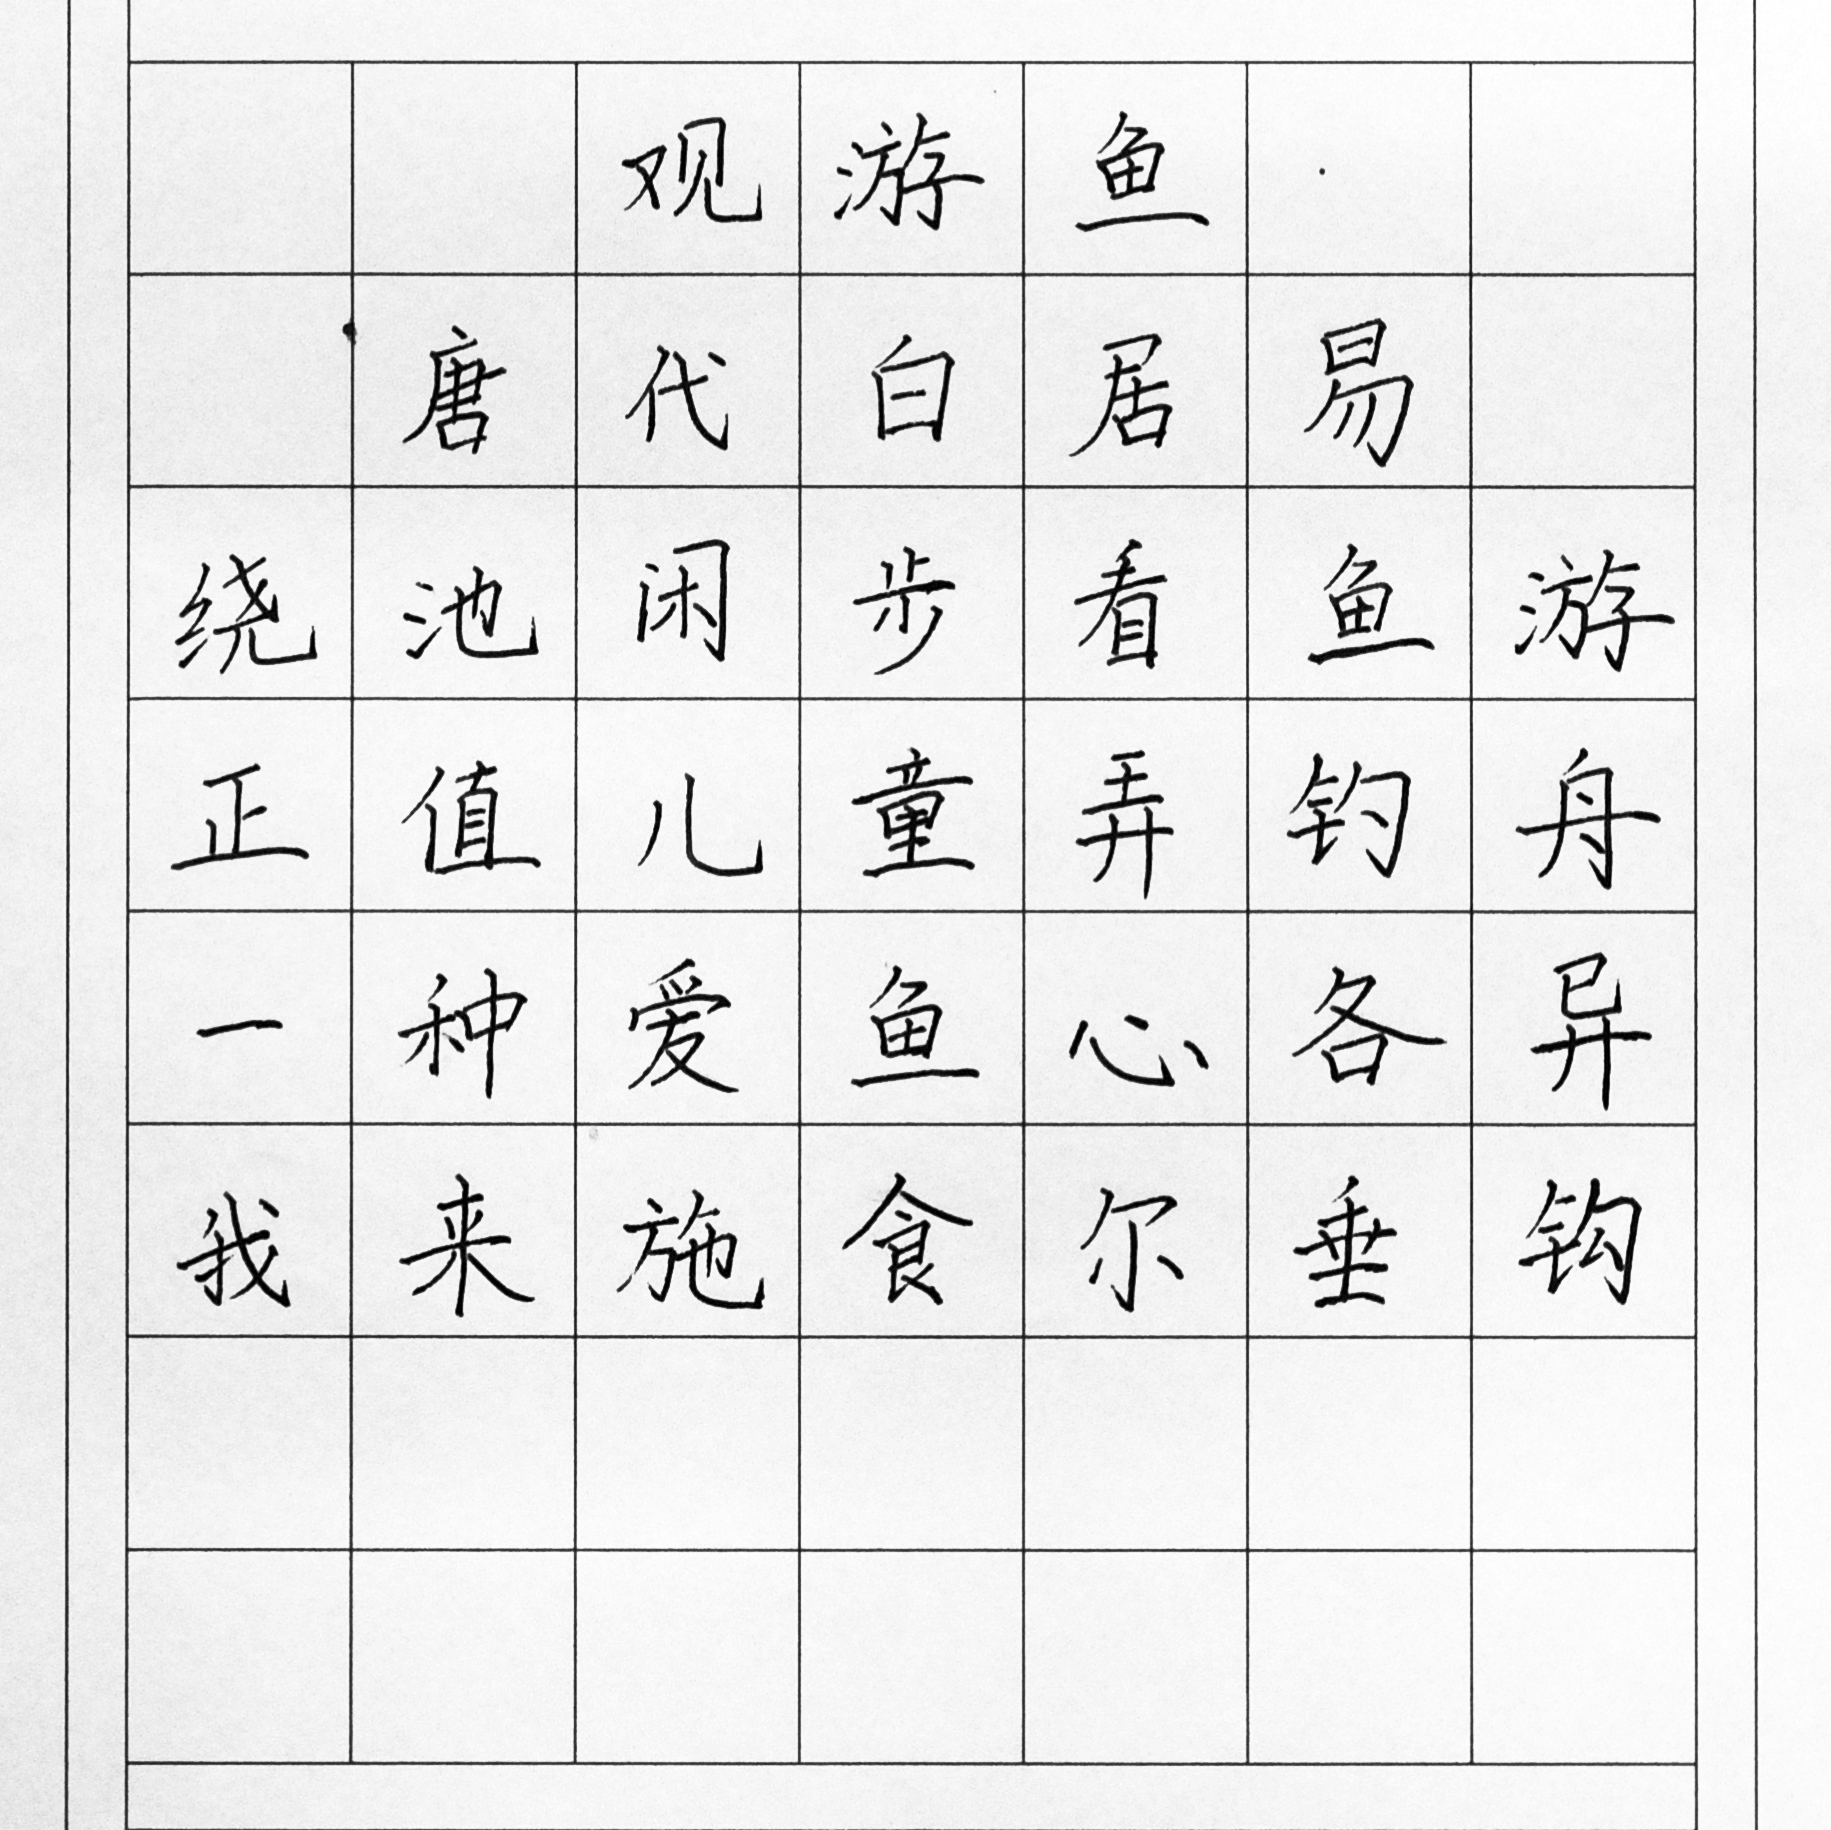 观游鱼
唐代白居易
绕池闲步看鱼游
正值儿童弄钓舟
一种爱鱼心各异
我来施食尔垂钩